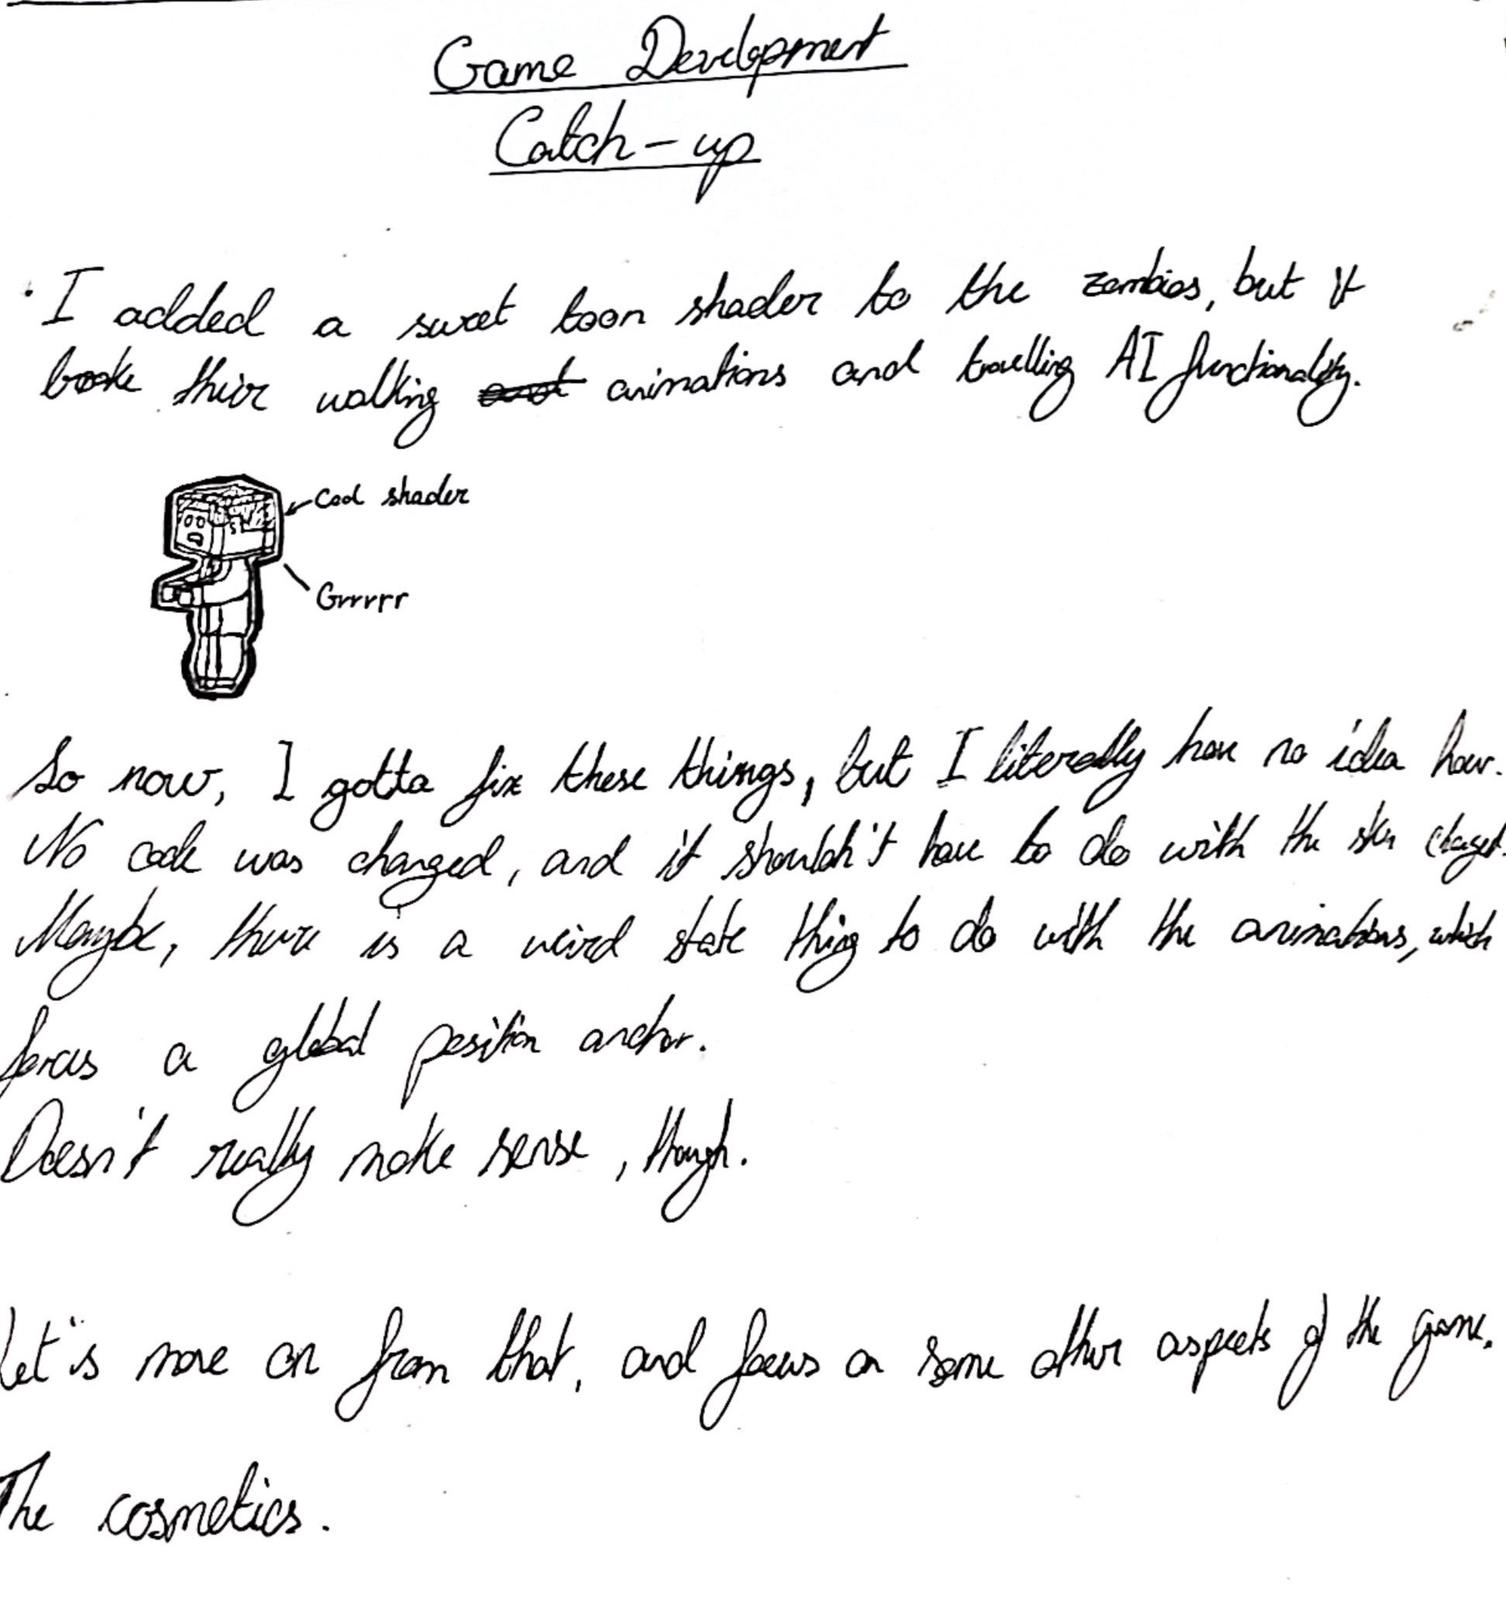 Game Development
Catch-up
· I added a sweet toon shader to the zombies, but it
broke thier walking animations and travelling AI functionality.
Cool shader
Grrrrr
So now, I gotta fix these things, but I literally have no idea how.
No code was changed, and it shouldn't have to do with the skin
Maybe, there is a weird state thing to do with the animations, which
forces a global position anchor.
Doesn't really make sense, though.
Let's move on from that, and focus on some other aspects of the game.
The cosmetics.